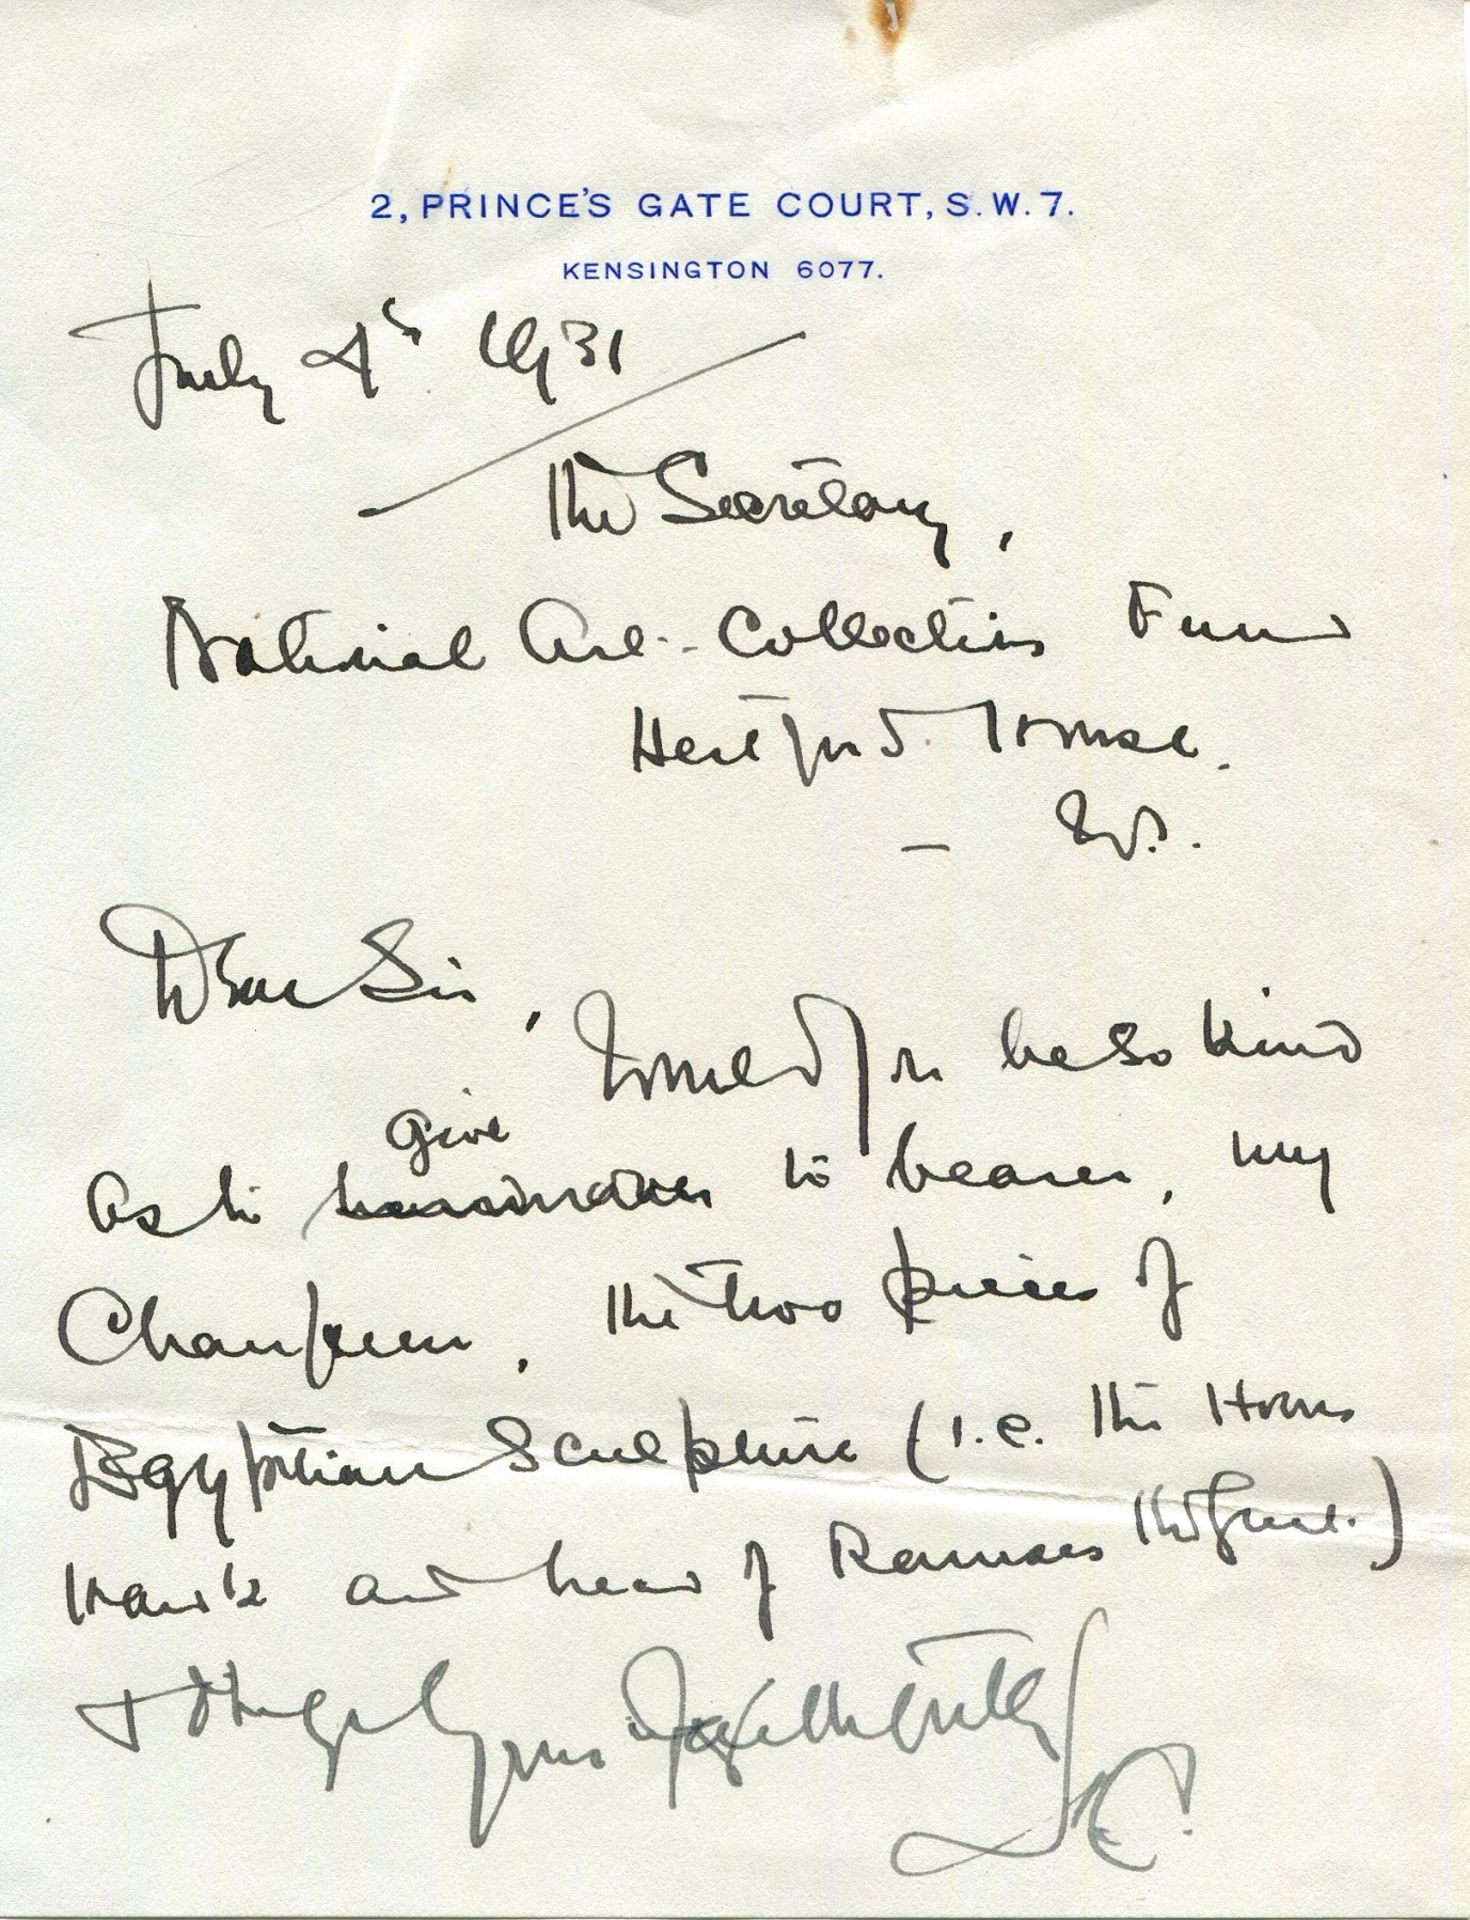 2, PRINCE'S GATE COURT, S.W.7.
KENSINGTON 6077.
July 4th 1931
The Secretary,
National Art-Collections Fund
Hertford House.
— W.
Dear Sir, Would you be so kind
give
as to to bearer, my
Chauffeur, the two pieces of
Egyptian Sculpture (i.e. the Horus
Hawk and head of Ramses the great.)
& oblige yours faithfully